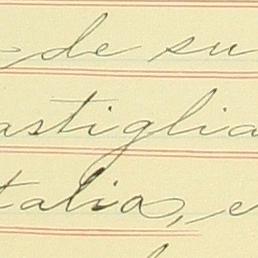 de su
astiglia
talia, e